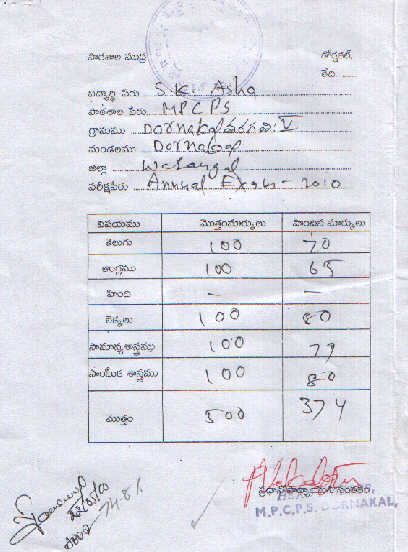 పాఠశాల ముద్ర
తేది
విద్యార్థి పేరు S.K. Asha
పాఠశాల పేరు MPCPS
గ్రామము Dornakal తరగతి: V
మండలము Dornakal
జిల్లా Warangal
పరీక్షపేరు Annual Exam - 2010
విషయము మొత్తంమార్కులు పొందిన మార్కులు
తెలుగు 100 70
ఆంగ్లము 100 65
హింది - -
లెక్కలు 100 80
సామాన్యశాస్త్రము 100 79
సాంఘీక శాస్త్రము 100 80
మొత్తం 500 374
74.8%
M.P.C.P.S. DORNAKAL,